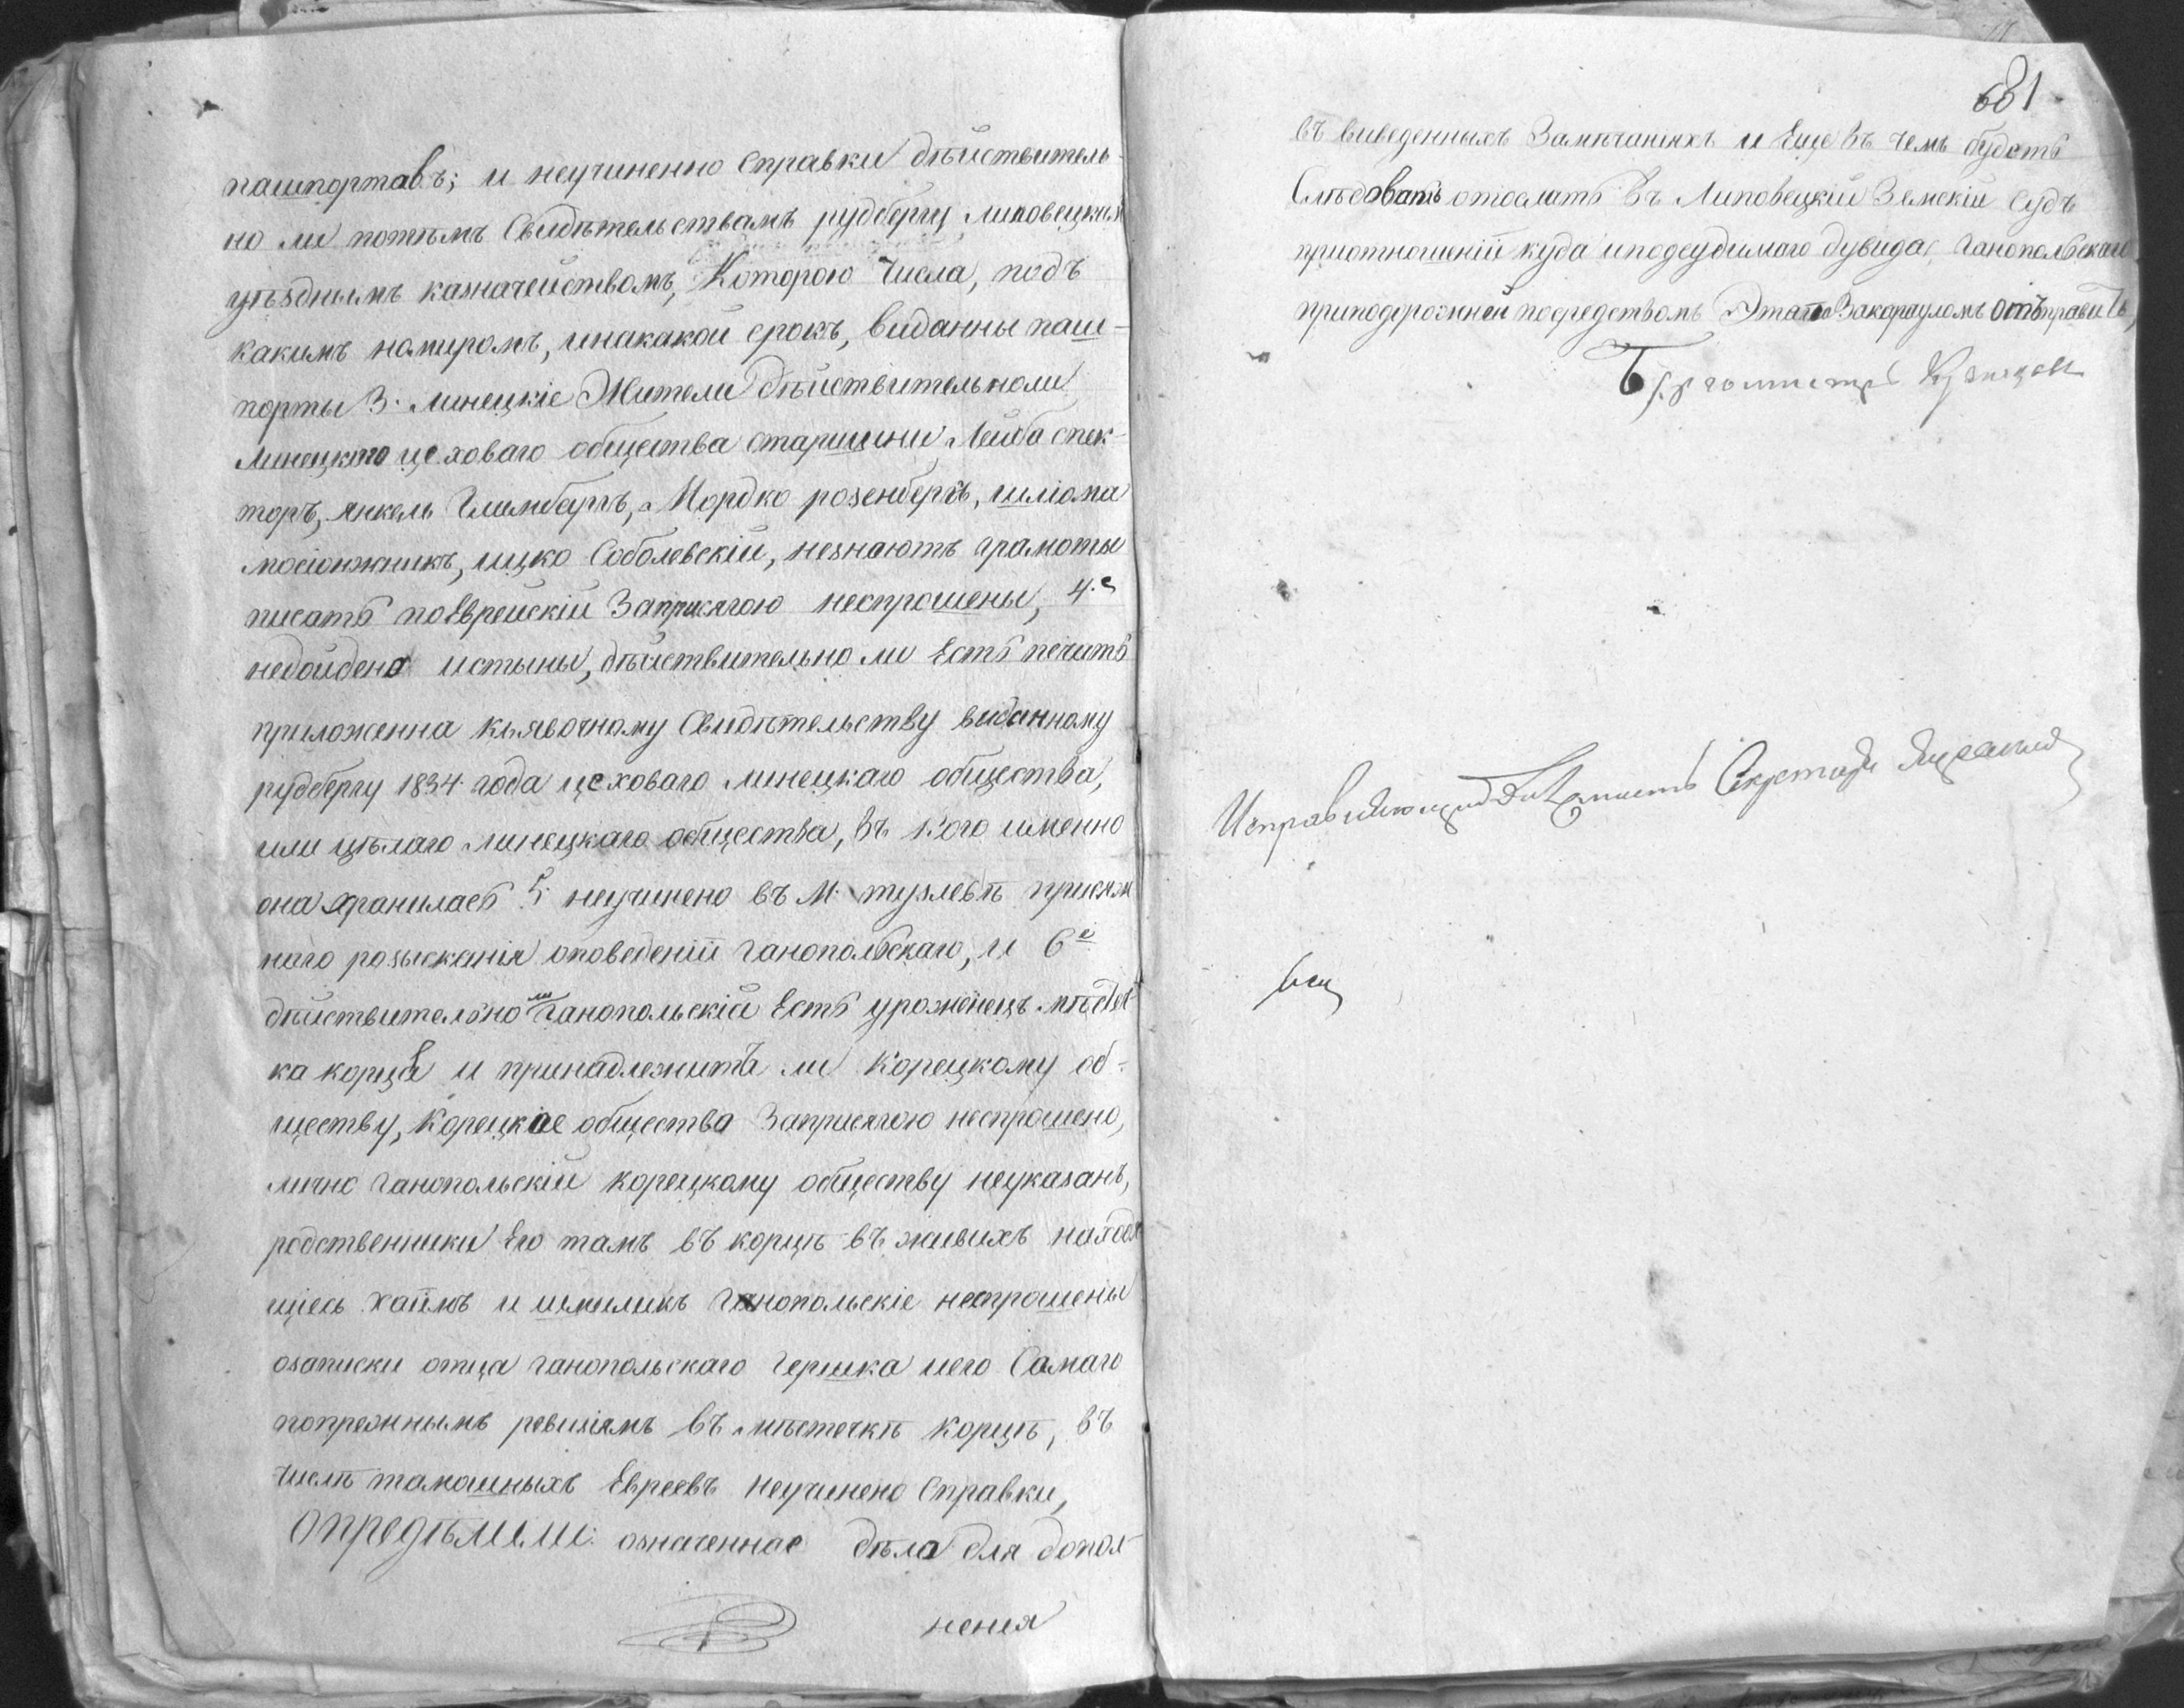 пашпортавъ; и неучиненно Справки дѣиствитель-
но ли потѣмъ Свидѣтельствамъ рудбергу Липовецкимъ
уѣзднымъ казначеиствомъ, Которого Числа, подъ
какимъ номиромъ, инакакои срокъ, виданны паш-
порты 3. Линецкіе Жители дѣиствительноли
Линецкого цеховаго общества старшини Леиба спек-
торъ, янкель Глимбергъ, Мордко розенбергъ, шліома
посіонжникъ, ицко Соболевскіи, незнаютъ грамоты
писатъ поЕврейскіи Заприсягою неспрошены, 4.е
недоидено истыны, дѣиствительно ли Естъ печатъ
приложенна къявочному Свидѣтельству виданному
рудбергу 1834 года цеховаго линецкаго общества,
или цѣлаго линецкаго общества, въ кого именно
она хранилась 5. неучинено въ М. тузлевѣ присяж
наго розысканія оповеденіи ганопольскаго, и 6е
дѣиствительно ли Ганопольскіи Естъ уроженецъ мѣстеч
ка корца и принадлежитъ ли Корецкому об-
ществу, Корецкое общества Заприсягою неспрошено,
лично ганопольскіи корецкому обществу неуказанъ,
родственники Его тамъ въ корцѣ въ живихъ находя
щіесь хаимъ и шмиликъ ганопольскіе неспрошены
озаписки отца ганопольскаго Гершка иего Самаго
попрежнымъ ревизіямъ въ мѣстечкѣ корцѣ, въ
числѣ тамошныхъ Евреевъ неучинено Справки,
Опредѣлили: означенное дѣло для допол-
ненія
681
въ виведенныхъ Замѣчаніяхъ и Еще въ чемъ будетъ
Слѣдовать отослать въ Липовецкіи Земскіи Судъ
приотношеніи куда иподсудимаго дувида ганопольскаго
приподорожнеи посредствомъ Этапа Закарауломъ отъправить,
Бургомистръ Кузнецовъ
Исправляющій Должность Секретаря